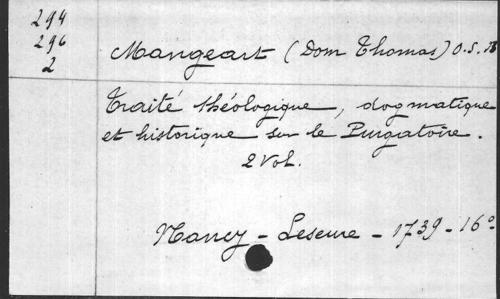 294
296
2
Mangeart (Dom Thomas) O.S.B
Traité théologique, dogmatique
et historique sur le Purgatoire.
2 Vol.
Nancy - Leseure - 1739 - 16°